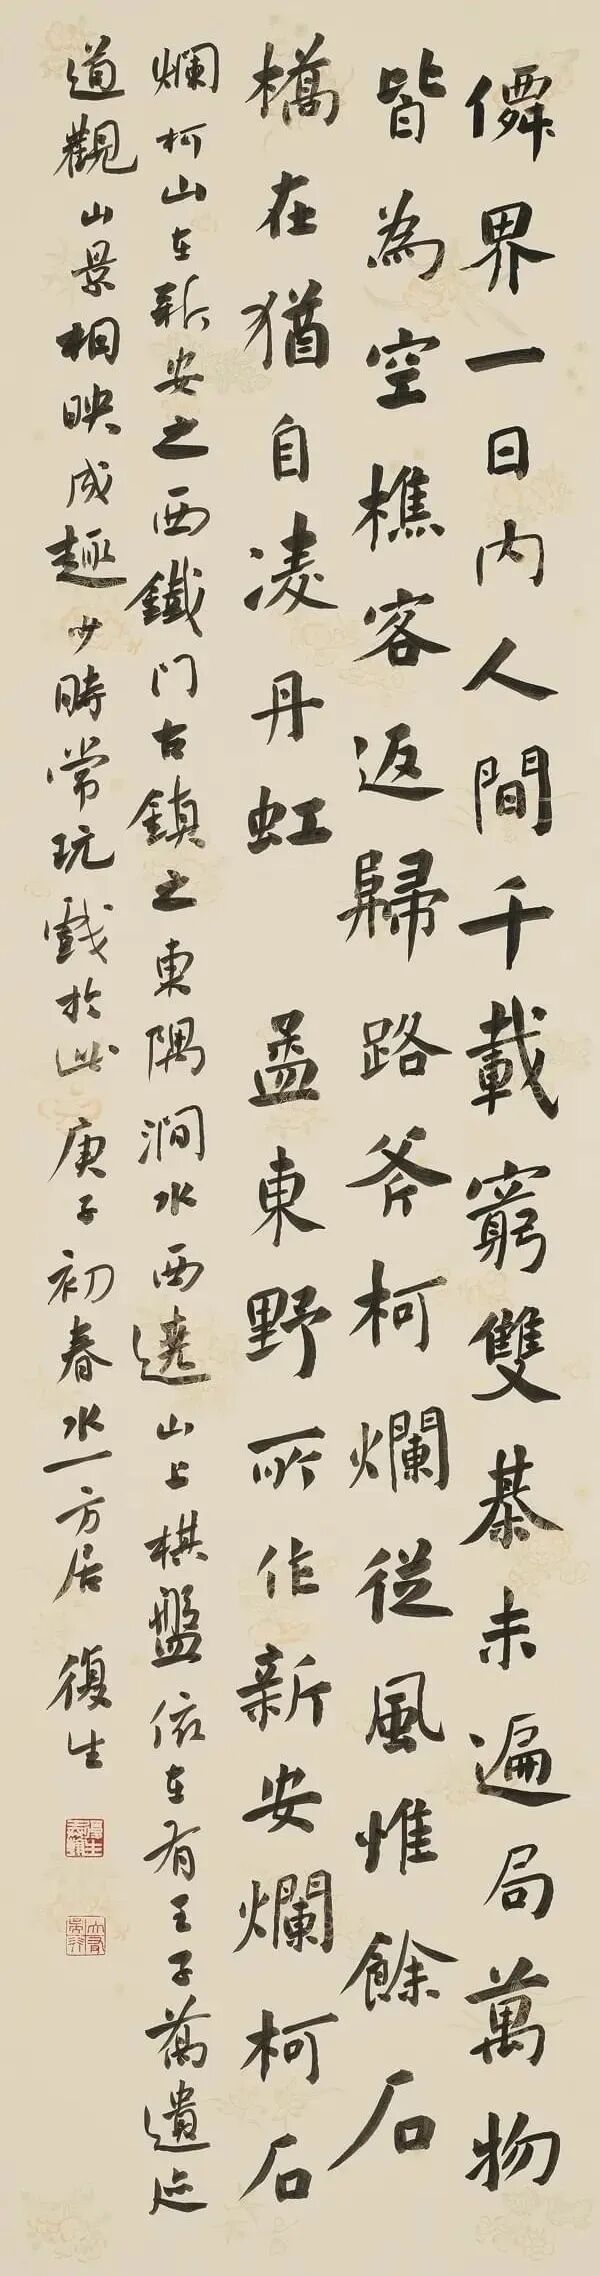 僊界一日内人間千載窮雙棊未遍局萬物
皆為空樵客返歸路斧柯爛從風惟餘石
橋在猶自凌丹虹 孟東野所作新安爛柯石
爛柯山在新安之西鐵门古鎮之東隅澗水西遶山上棋盤依在有王子喬遺迹
道觀山景相映成趣少時常玩戲於此 庚子初春水一方居 復生